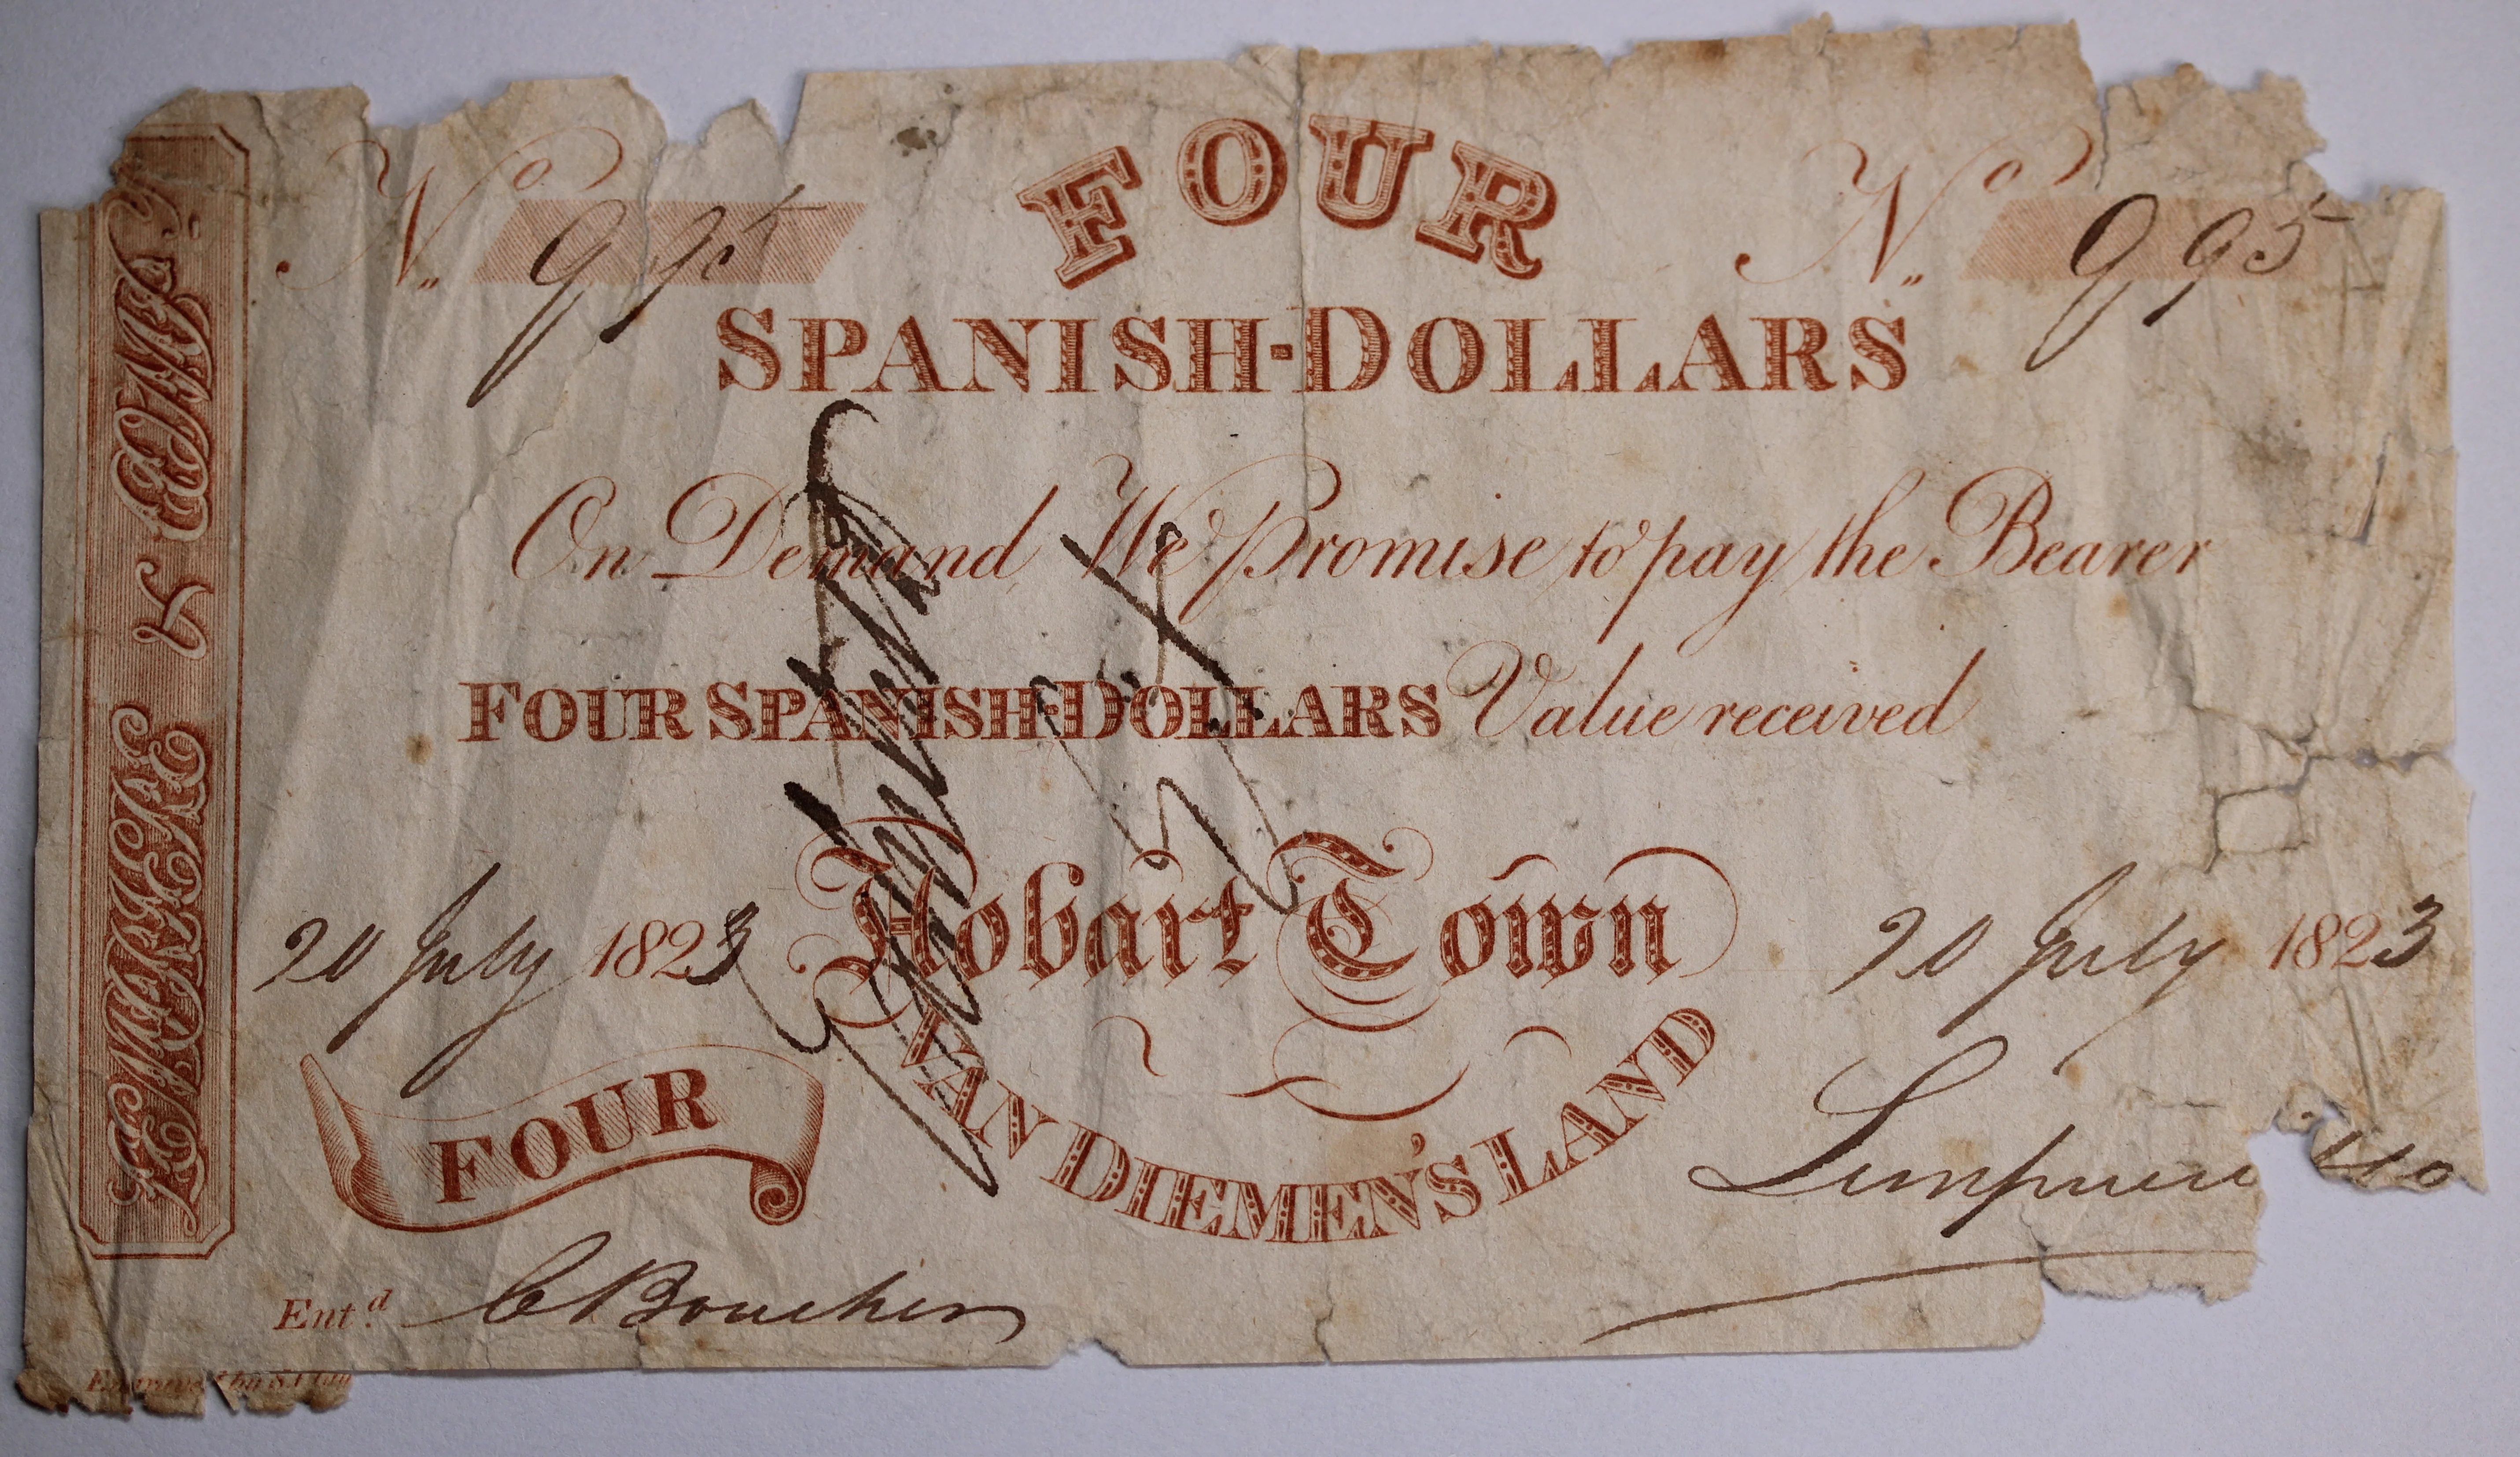 KEMPERE & COMP.
No. 995
FOUR
No. 995
SPANISH-DOLLARS
On Demand We Promise to pay the Bearer
FOUR SPANISH-DOLLARS Value received
20 July 1823
Hobart Town
20 July 1823
VAN DIEMEN'S LAND
FOUR
Ent.d